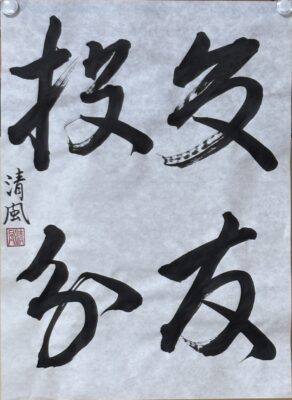 交友
投分
清風